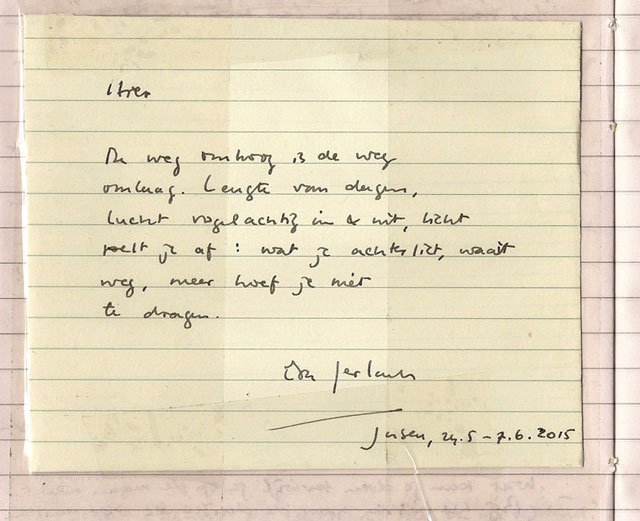 Hier
De weg omhoog is de weg
omlaag. Lengte van dagen,
lucht vogelachtig in & uit, licht
pelt je af: wat je achterliet, waait
weg, meer hoef je niet
te dragen.
Jusen, 24.5 - 7.6.2015